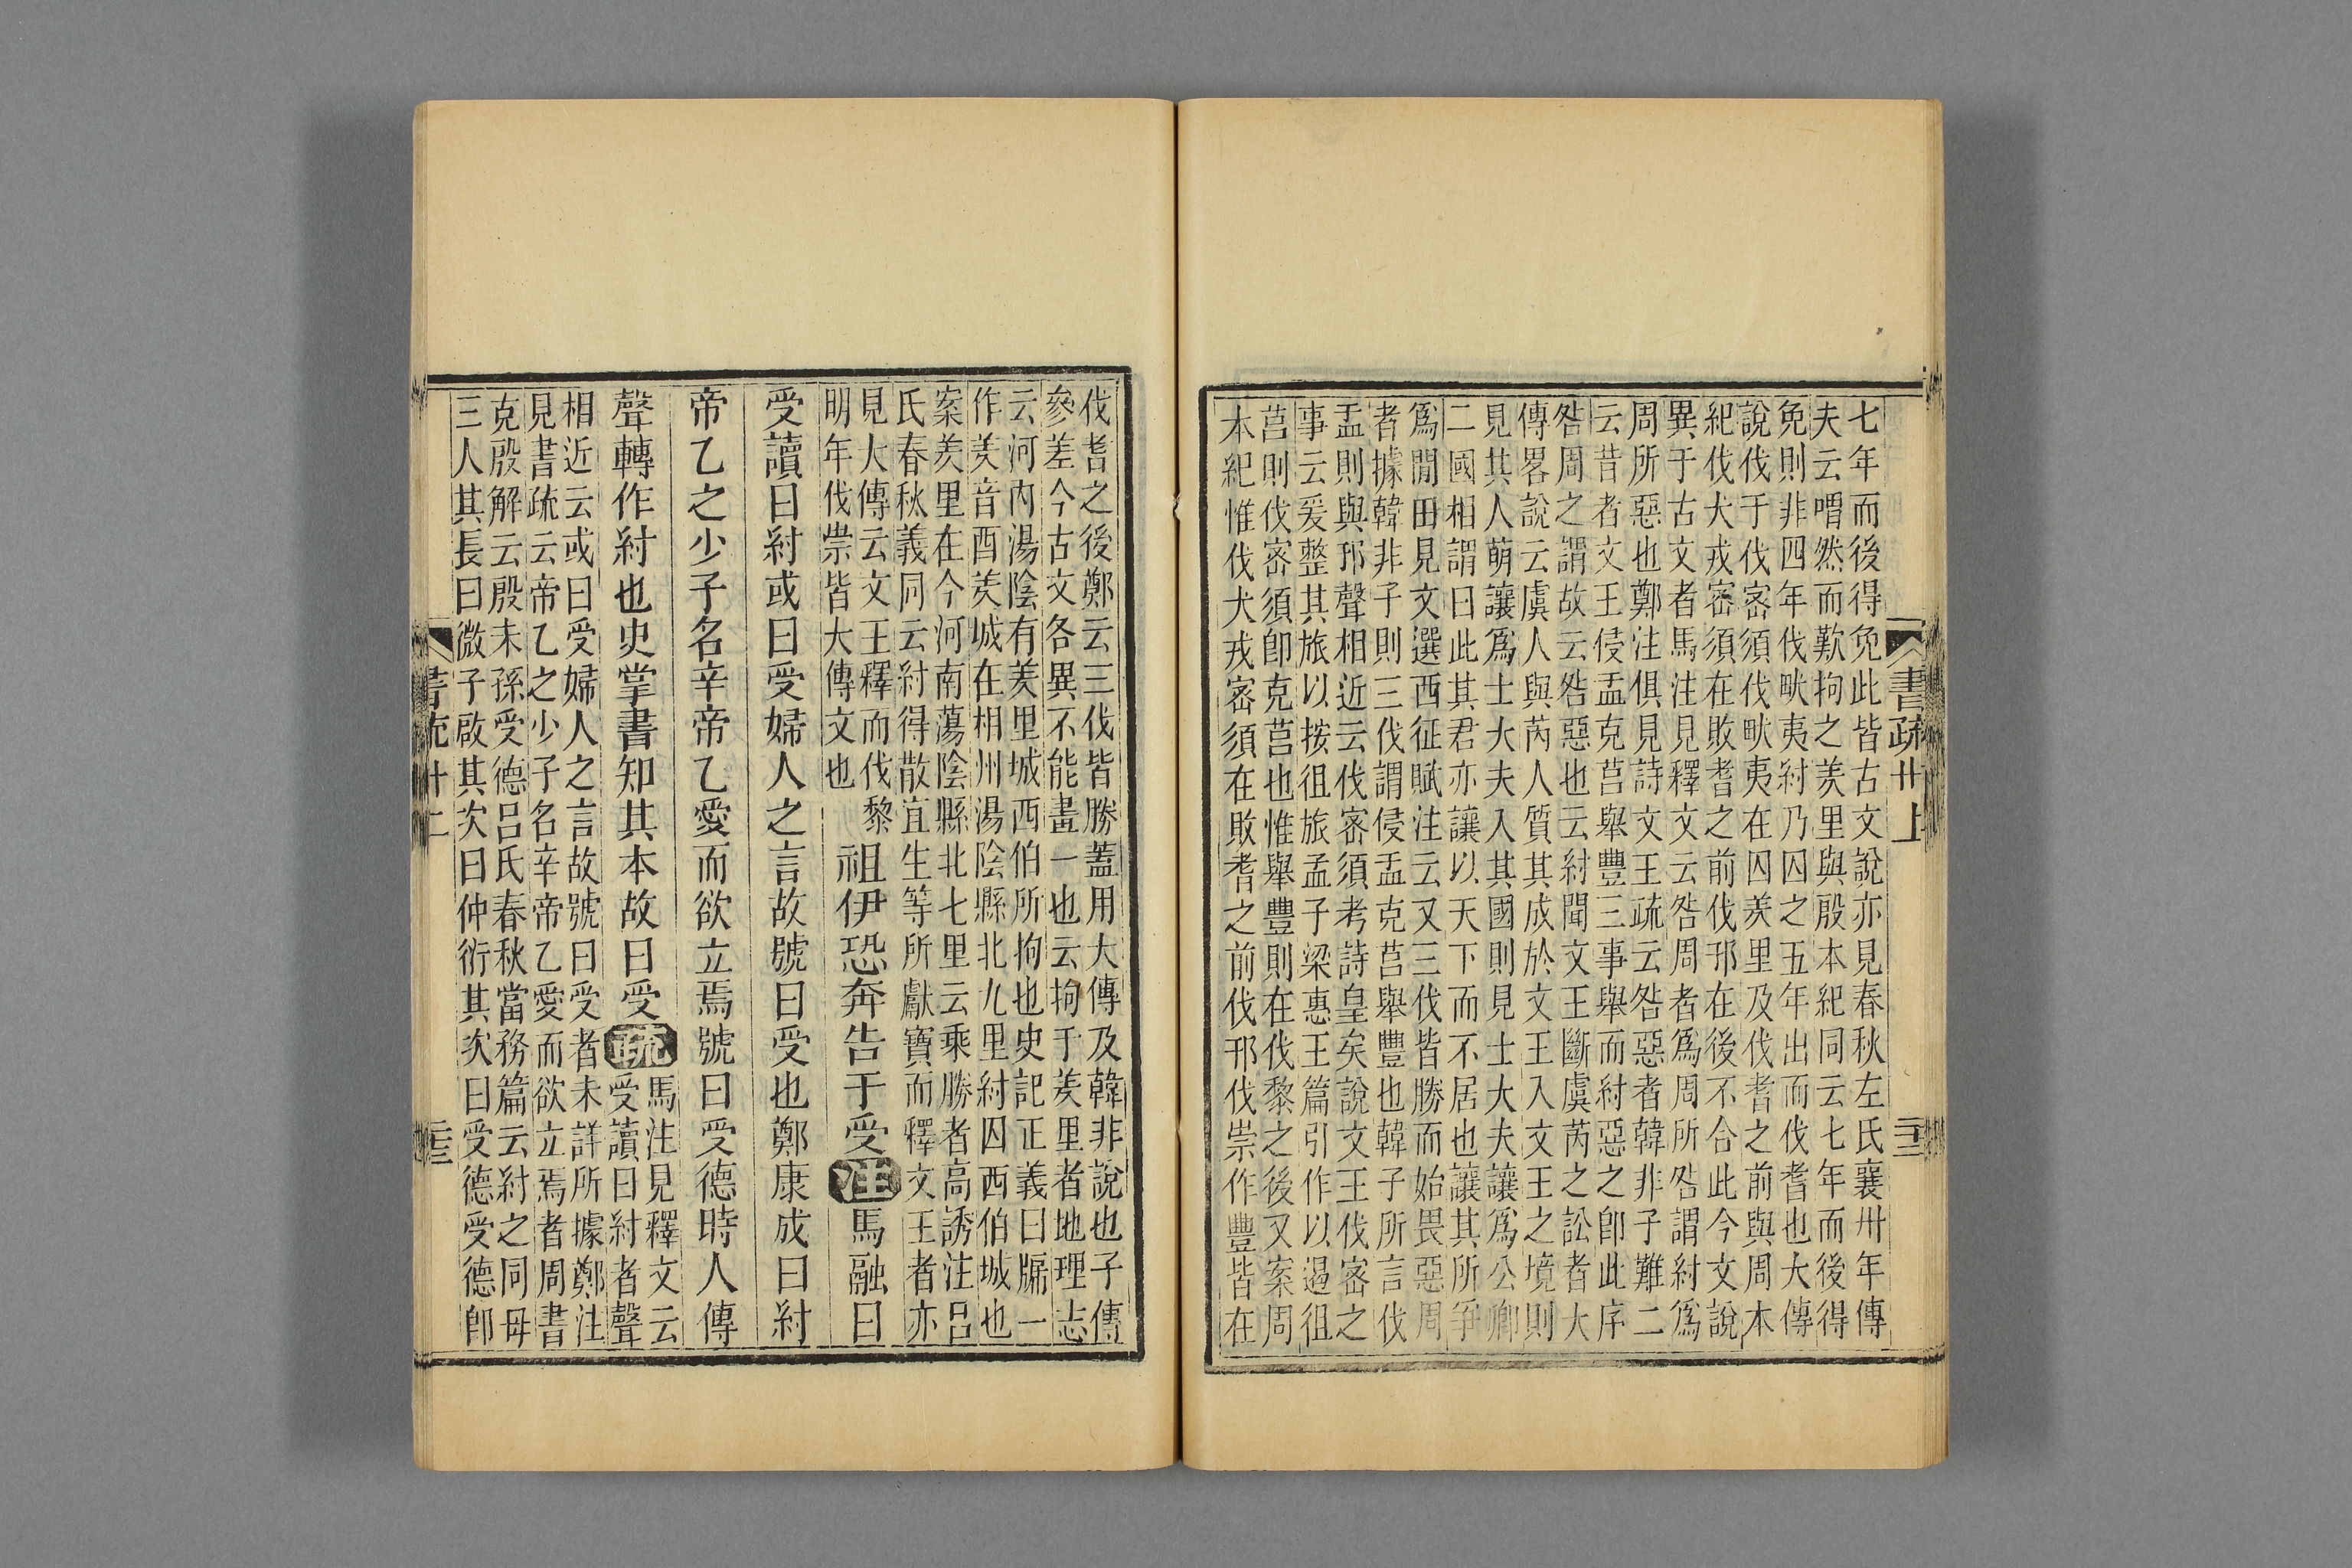 七年而後得免此皆古文說亦見春秋左氏襄卅年傳
夫云喟然而歎拘之羑里與殷本紀同云七年而後得
免則非四年伐畎夷紂乃囚之五年出而伐耆也大傳
說伐于伐宻須伐畎夷在囚羑里及伐耆之前與周本
紀伐犬戎宻須在敗耆之前伐邘在後不合此今文說
異于古文者馬注見釋文云咎周者爲周所咎謂紂爲
周所惡也鄭注俱見詩文王疏云咎惡者韓非子難二
云昔者文王侵盂克莒舉豐三事舉而紂惡之卽此序
咎周之謂故云咎惡也云紂聞文王斷虞芮之訟者大
傳畧說云虞人與芮人質其成於文王入文王之境則
見其人萌讓爲士大夫入其國則見士大夫讓爲公卿
二國相謂曰此其君亦讓以天下而不居也讓其所爭
爲閒田見文選西征賦注云又三伐皆勝而始畏惡周
者據韓非子則三伐謂侵盂克莒舉豐也韓子所言伐
盂則與邘聲相近云伐宻須考詩皇矣說文王伐宻之
事云爰整其旅以按徂旅孟子梁惠王篇引作以遏徂
莒則伐宻須卽克莒也惟舉豐則在伐黎之後又案周
本紀惟伐犬戎宻須在敗耆之前伐邘伐崇作豐皆在
書疏卅上
二十三
伐耆之後鄭云三伐皆勝蓋用大傳及韓非說也子傳
參差今古文各異不能畫一也云拘于羑里者地理志
云河內湯陰有羑里城西伯所拘也史記正義曰牖一
作羑音酉羑城在相州湯陰縣北九里紂囚西伯城也
案羑里在今河南蕩陰縣北七里云乘勝者高誘注呂
氏春秋義同云紂得散宜生等所獻寶而釋文王者亦
見大傳云文王釋而伐黎
明年伐崇皆大傳文也
祖伊恐奔告于受注馬融曰
受讀曰紂或曰受婦人之言故號曰受也鄭康成曰紂
帝乙之少子名辛帝乙愛而欲立焉號曰受德時人傳
聲轉作紂也史掌書知其本故曰受疏
馬注見釋文云
受讀曰紂者聲
相近云或曰受婦人之言故號曰受者未詳所據鄭注
見書疏云帝乙之少子名辛帝乙愛而欲立焉者周書
克殷解云殷末孫受德呂氏春秋當務篇云紂之同母
三人其長曰微子啟其次曰仲衍其次曰受德受德卽